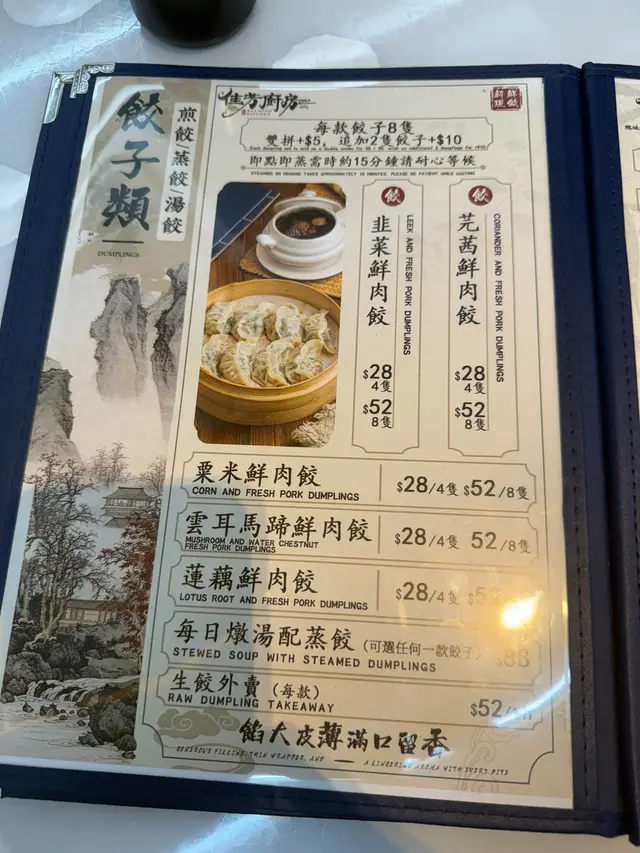 佳芳廚房
新鮮
現餃
餃子類
煎餃/蒸餃/湯餃
DUMPLINGS
每款餃子8隻
雙拼+$5，追加2隻餃子+$10
即點即蒸需時約15分鐘請耐心等候
STEAMING ON DEMAND TAKES APPROXIMATELY 15 MINUTES, PLEASE BE PATIENT WHILE WAITING
餃
韭菜鮮肉餃
LEEK AND FRESH PORK DUMPLINGS
$28
4隻
$52
8隻
餃
芫茜鮮肉餃
CORIANDER AND FRESH PORK DUMPLINGS
$28
4隻
$52
8隻
粟米鮮肉餃 $28/4隻 $52/8隻
CORN AND FRESH PORK DUMPLINGS
雲耳馬蹄鮮肉餃 $28/4隻 52/8隻
MUSHROOM AND WATER CHESTNUT
FRESH PORK DUMPLINGS
蓮藕鮮肉餃 $28/4隻
LOTUS ROOT AND FRESH PORK DUMPLINGS
每日燉湯配蒸餃 (可選任何一款餃子) $88
STEWED SOUP WITH STEAMED DUMPLINGS
生餃外賣 (每款) $52
RAW DUMPLING TAKEAWAY
餡大皮薄滿口留香
GENEROUS FILLING, THIN WRAPPER, AND
A LINGERING AROMA WITH EVERY BITE